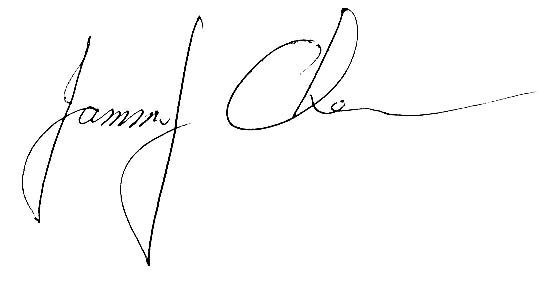 Jammy Chen